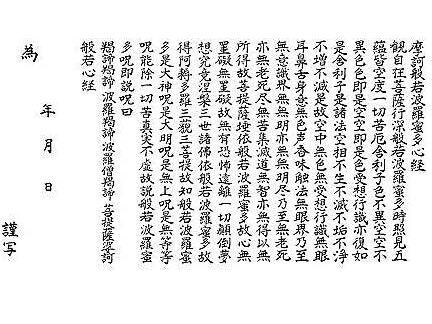 摩訶般若波羅蜜多心経
観自在菩薩行深般若波羅蜜多時照見五
蘊皆空度一切苦厄舎利子色不異空空不
異色色即是空空即是色受想行識亦復如
是舎利子是諸法空相不生不滅不垢不浄
不増不減是故空中無色無受想行識無眼
耳鼻舌身意無色声香味触法無眼界乃至
無意識界無無明亦無無明尽乃至無老死
亦無老死尽無苦集滅道無智亦無得以無
所得故菩提薩埵依般若波羅蜜多故心無
罣礙無罣礙故無有恐怖遠離一切顛倒夢
想究竟涅槃三世諸佛依般若波羅蜜多故
得阿耨多羅三藐三菩提故知般若波羅蜜
多是大神呪是大明呪是無上呪是無等等
呪能除一切苦真実不虚故説般若波羅蜜
多呪即説呪曰
羯諦羯諦波羅羯諦波羅僧羯諦菩提薩婆訶
般若心経
年月日
為
謹写